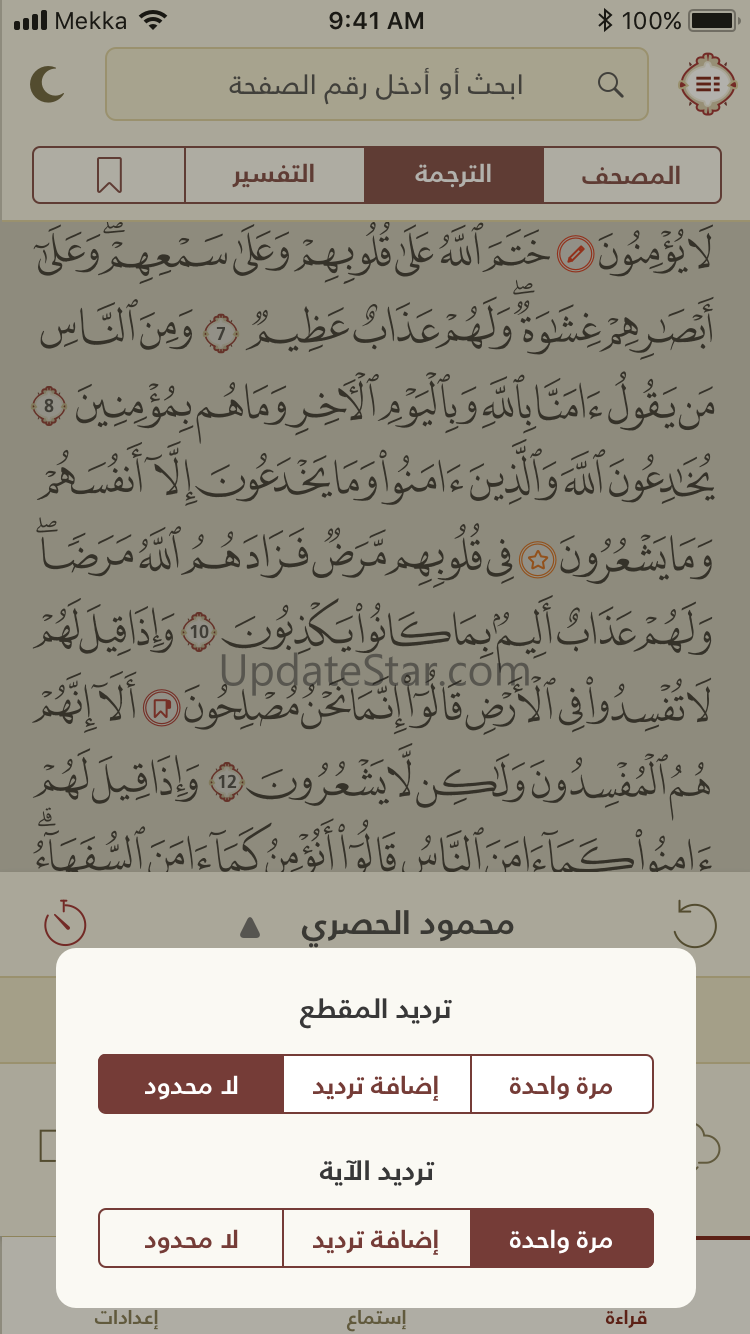 Mekka 9:41 AM 100%
ابحث أو أدخل رقم الصفحة
المصحف الترجمة التفسير
لَا يُؤۡمِنُونَ خَتَمَ ٱللَّهُ عَلَىٰ قُلُوبِهِمۡ وَعَلَىٰ سَمۡعِهِمۡۖ وَعَلَىٰٓ
أَبۡصَٰرِهِمۡ غِشَٰوَةٞۖ وَلَهُمۡ عَذَابٌ عَظِيمٞ 7 وَمِنَ ٱلنَّاسِ
مَن يَقُولُ ءَامَنَّا بِٱللَّهِ وَبِٱلۡيَوۡمِ ٱلۡأٓخِرِ وَمَا هُم بِمُؤۡمِنِينَ 8
يُخَٰدِعُونَ ٱللَّهَ وَٱلَّذِينَ ءَامَنُواْ وَمَا يَخۡدَعُونَ إِلَّآ أَنفُسَهُمۡ
وَمَا يَشۡعُرُونَ فِي قُلُوبِهِم مَّرَضٞ فَزَادَهُمُ ٱللَّهُ مَرَضٗاۖ
وَلَهُمۡ عَذَابٌ أَلِيمُۢ بِمَا كَانُواْ يَكۡذِبُونَ 10 وَإِذَا قِيلَ لَهُمۡ
UpdateStar.com
لَا تُفۡسِدُواْ فِي ٱلۡأَرۡضِ قَالُوٓاْ إِنَّمَا نَحۡنُ مُصۡلِحُونَ أَلَآ إِنَّهُمۡ
هُمُ ٱلۡمُفۡسِدُونَ وَلَٰكِن لَّا يَشۡعُرُونَ 12 وَإِذَا قِيلَ لَهُمۡ
ءَامِنُواْ كَمَآ ءَامَنَ ٱلنَّاسُ قَالُوٓاْ أَنُؤۡمِنُ كَمَآ ءَامَنَ ٱلسُّفَهَآءُۗ
محمود الحصري
ترديد المقطع
مرة واحدة إضافة ترديد لا محدود
ترديد الآية
مرة واحدة إضافة ترديد لا محدود
قراءة إستماع إعدادات